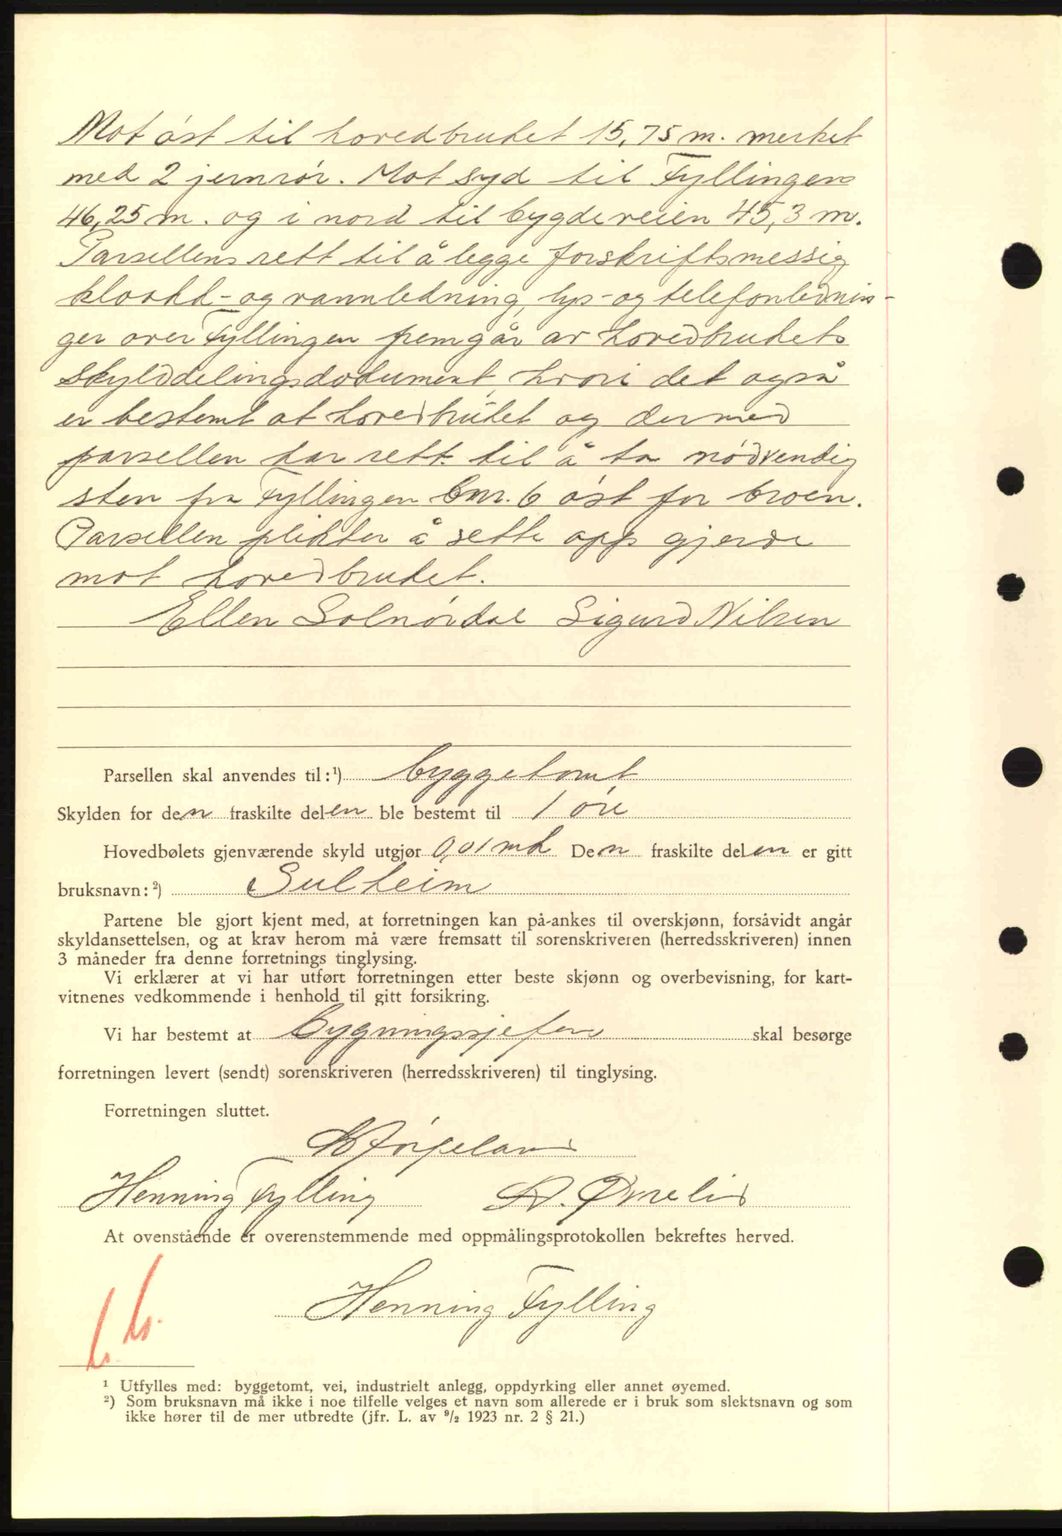 Mot øst til hovedbruket 15,75 m. merket
med 2 jernrör. Mot syd til Fyllingen
46,25 m. og i nord til bygdeveien 45,3 m.
Parsellens rett til å legge forskriftsmessig
kloakk- og vannledning, lys- og telefonlednin-
ger over Fyllingen fremgår av hovedbrukets
skylddelingsdokument, hvori det også
er bestemt at hovedbruket og dermed
parsellen har rett til å ta nödvendig
sten fra Fyllingen bnr. 6 øst for broen.
Parsellen plikter å sette opp gjerde
mot hovedbruket.
Ellen Solnördal Sigurd Nilsen
Parsellen skal anvendes til:¹) byggetomt
Skylden for den fraskilte delen ble bestemt til 1 öre
Hovedbølets gjenværende skyld utgjør 0,01 mk Den fraskilte delen er gitt
bruksnavn:²) Sulheim
Partene ble gjort kjent med, at forretningen kan på-ankes til overskjønn, forsåvidt angår
skyldansettelsen, og at krav herom må være fremsatt til sorenskriveren (herredsskriveren) innen
3 måneder fra denne forretnings tinglysing.
Vi erklærer at vi har utført forretningen etter beste skjønn og overbevisning, for kart-
vitnenes vedkommende i henhold til gitt forsikring.
Vi har bestemt at Bygningssjefen skal besørge
forretningen levert (sendt) sorenskriveren (herredsskriveren) til tinglysing.
Forretningen sluttet.
Henning Fylling
At ovenstående er overenstemmende med oppmålingsprotokollen bekreftes herved.
Henning Fylling
¹ Utfylles med: byggetomt, vei, industrielt anlegg, oppdyrking eller annet øyemed.
²) Som bruksnavn må ikke i noe tilfelle velges et navn som allerede er i bruk som slektsnavn og som
ikke hører til de mer utbredte (jfr. L. av 9/2 1923 nr. 2 § 21.)